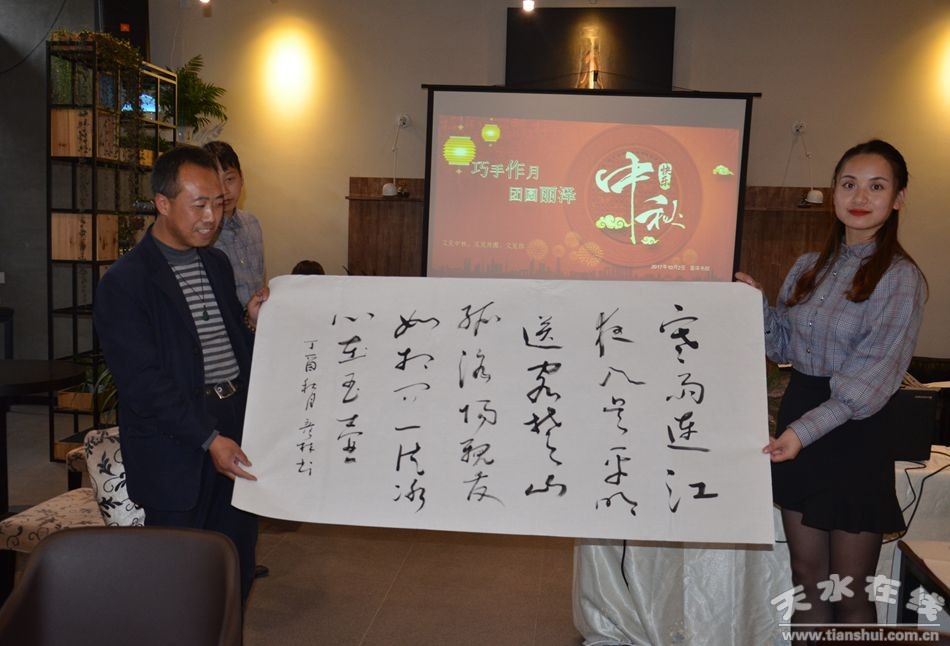 巧手作月
团圆丽泽
中秋
快乐
2017年10月2日
寒雨连江
夜入吴平明
送客楚山
孤洛陽親友
如相问一片冰
心在玉壶
丁酉秋月
天水在线
www.tianshui.com.cn